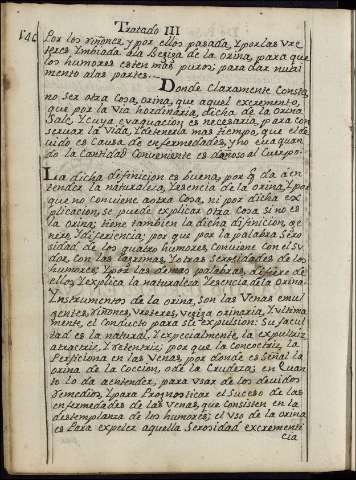 Tratado III
Por los riñones, y por ellos pasada, Y por las Vre
teres Ymbiada ala Begiga de la Orina, para que
los humores esten mas puros; para dar nutri
mento alas partes.
Donde claramente Consta,
no ser otra Cosa, orina, que aquel excremento,
que por la Via hordinaria, dicha de la Orina
Sale, Y cuya evaquacion es necesaria, para con
servar la Vida, Y detenerla mas tiempo, que el de
vido es Causa de enfermedades, y no evaquan
do la Cantidad Conveniente es dañoso al Cuerpo.
La dicha difinicion es buena, por q̃ da aen
tender la naturaleza, Yesencia de la Orina, Y por
que no conviene aotra Cosa, ni por dicha ex
plicacion, se puede explicar otra Cosa si no es
la Orina; tiene tambien la dicha difinicion, ge
nero, Ydiferencia: por que por la palabra Sero
sidad de los quatro humores, Conviene con el Su
dor, con las lagrimas, Y otras Serosidades de los
humores, Y por las demas palabras, difiere de
ellos Yexplica la naturaleza Yesencia dela Orina.
Ynstrumentos de la orina, son las Venas emul
gentes, riñones, Vreteres, vegiga orinaria, Y ultima
mente, el Conducto para su expulsion: Su facul
tad es la natural, Y expecialmente, la expultriz
atractriz, Y detentriz, por que la Concoctriz, la
Perficiona en las Venas, por donde es Señal la
orina de la Coccion, o de la Crudeza en quan
to lo da aentender, para usar de los devidos
remedios, Y para Prognosticar el Suceso de las
enfermedades de las Venas, que Consisten en la
destemplanza de los humores; el Uso de la Orina
es Para expeler aquella Serosidad excrementi
cia